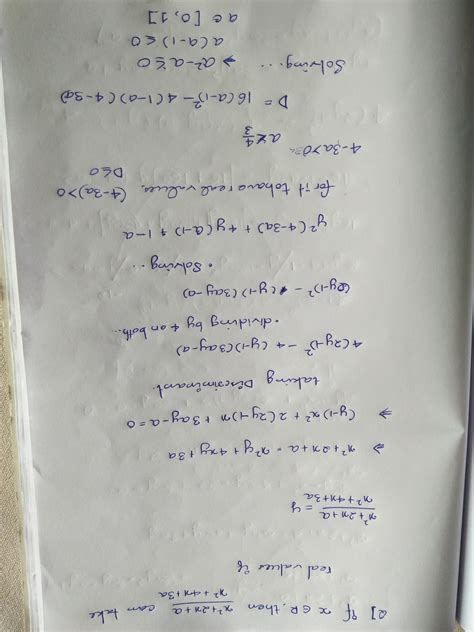 Q] If x ∈ R, then (x²+2x+a)/(x²+4x+3a) can take
real values if
(x²+2x+a)/(x²+4x+3a) = y
⇒ x²+2x+a = x²y + 4xy + 3a
⇒ (y-1)x² + 2(2y-1)x + 3ay-a = 0
taking Discriminant.
4(2y-1)² - 4(y-1)(3ay-a)
• dividing by 4 on both...
(2y-1)² - (y-1)(3ay-a)
• Solving...
y²(4-3a) + 4y(a-1) + 1-a
for it to have real values, (4-3a)>0
D≤0
4-3a>0
a<4/3
D = 16(a-1)² - 4(1-a)(4-3a)
Solving... → a²-a≤0
a(a-1)≤0
a ∈ [0,1]